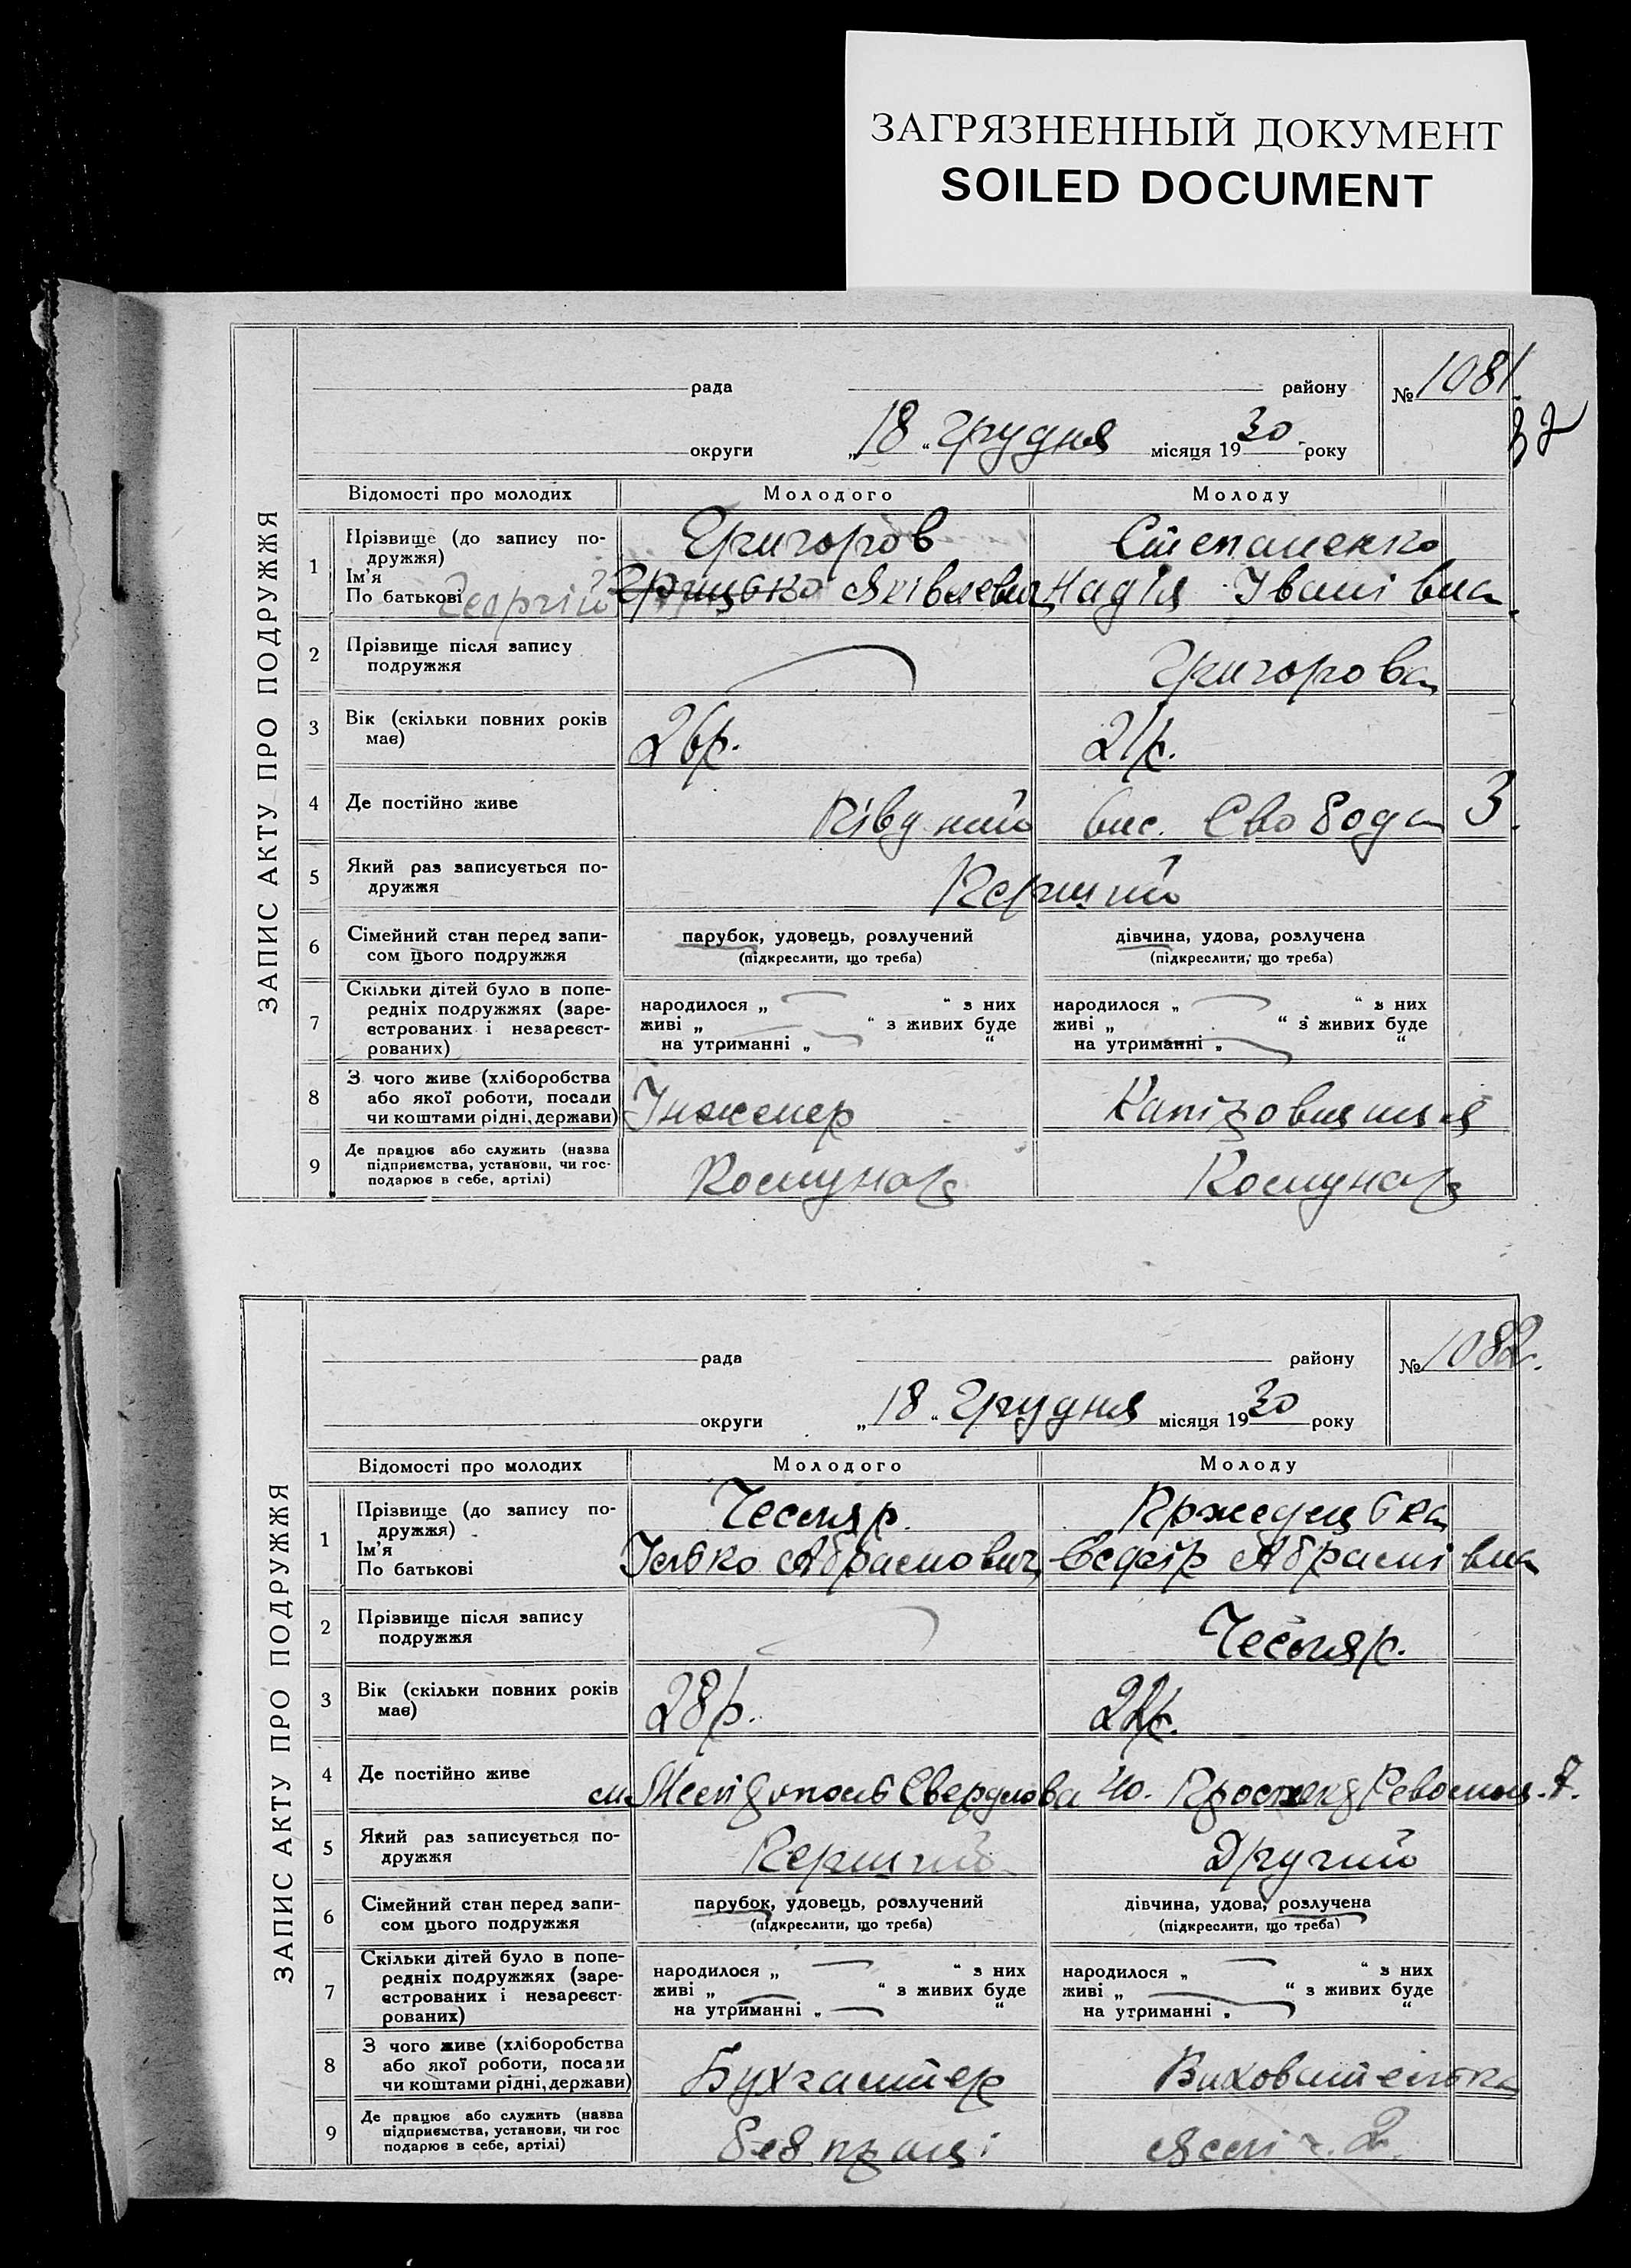 ЗАГРЯЗНЕННЫЙ ДОКУМЕНТ
SOILED DOCUMENT
ЗАПИС АКТУ ПРО ПОДРУЖЖЯ
рада району № 1081.
32
округи „18“ Грудня місяця 1930 року
Відомості про молодих Молодого Молоду
1 Прізвище (до запису подружжя) Григоров Степаненко
Ім'я
По батькові Георгій Грицько Яківлевич Надія Іванівна
2 Прізвище після запису
подружжя Григорова
3 Вік (скільки повних років
має) 26р. 21р.
4 Де постійно живе Півдний вис. Свобода 3.
5 Який раз записується по-
дружжя Перший
6 Сімейний стан перед запи- парубок, удовець, розлучений дівчина, удова, розлучена
сом цього подружжя (підкреслити, що треба) (підкреслити, що треба)
7 Скільки дітей було в попе-
редніх подружжях (заре- народилося „ “ з них народилося „ “ з них
єстрованих і незареєст- живі „ “ з живих буде живі „ “ з живих буде
рованих) на утриманні „ “ на утриманні „ “
8 З чого живе (хліборобства
або якої роботи, посади
чи коштами рідні, держави) Інженер
9 Де працює або служить (назва
підприємства, установи, чи гос-
подарює в себе, артілі) Комунар Комунар
ЗАПИС АКТУ ПРО ПОДРУЖЖЯ
рада району № 1082.
округи „18“ Грудня місяця 1930 року
Відомості про молодих Молодого Молоду
1 Прізвище (до запису по-
дружжя) Чесляр Пржедецька
Ім'я
По батькові Ілько Абрамович Есфір Абрамівна
2 Прізвище після запису
подружжя Чесляр.
3 Вік (скільки повних років
має) 28р. 22р.
4 Де постійно живе м. Мелітополь Свердлова 40. Проспект Революц. 7.
5 Який раз записується по-
дружжя Перший Другий
6 Сімейний стан перед запи- парубок, удовець, розлучений дівчина, удова, розлучена
сом цього подружжя (підкреслити, що треба) (підкреслити, що треба)
7 Скільки дітей було в попе-
редніх подружжях (заре- народилося „ “ з них народилося „ “ з них
єстрованих і незареєст- живі „ “ з живих буде живі „ “ з живих буде
рованих) на утриманні „ “ на утриманні „ “
8 З чого живе (хліборобства
або якої роботи, посади
чи коштами рідні, держави) Бухгалтер Вихователька
9 Де працює або служить (назва
підприємства, установи, чи гос
подарює в себе, артілі) без праці Яслі ч. 2.